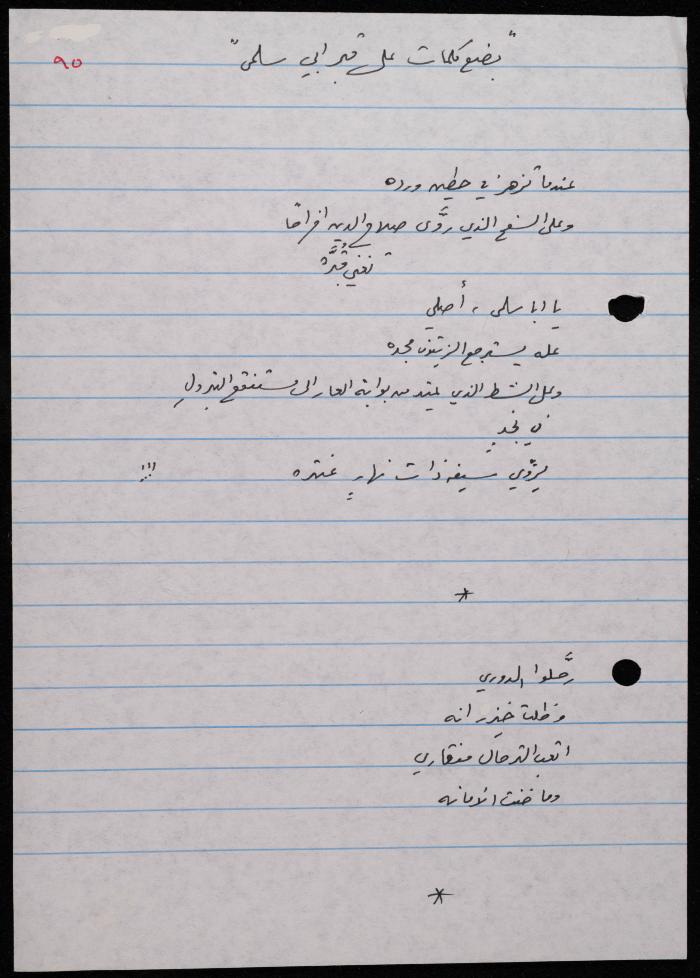 ٩٥
"بضع كلمات على قبر ابي سلمى"
عندما تزهر في حطين ورده
وعلى السفح الذي روَّى صلاح الدين افراحًا
تغني قُبَّره
يا ابا سلمى، أصلي
عله يسترجع الزيتون مجده
وعلى الشط الذي يمتد من بوابة العار الى مستنقع البترولِ
في نجدٍ
يروّي سيفه ذات نهارٍ عنتره !!!
*
رحَّلوا الدوري
وظلت خيزرانه
اتعب الترحال منقاري
وما خنت الامانه
*